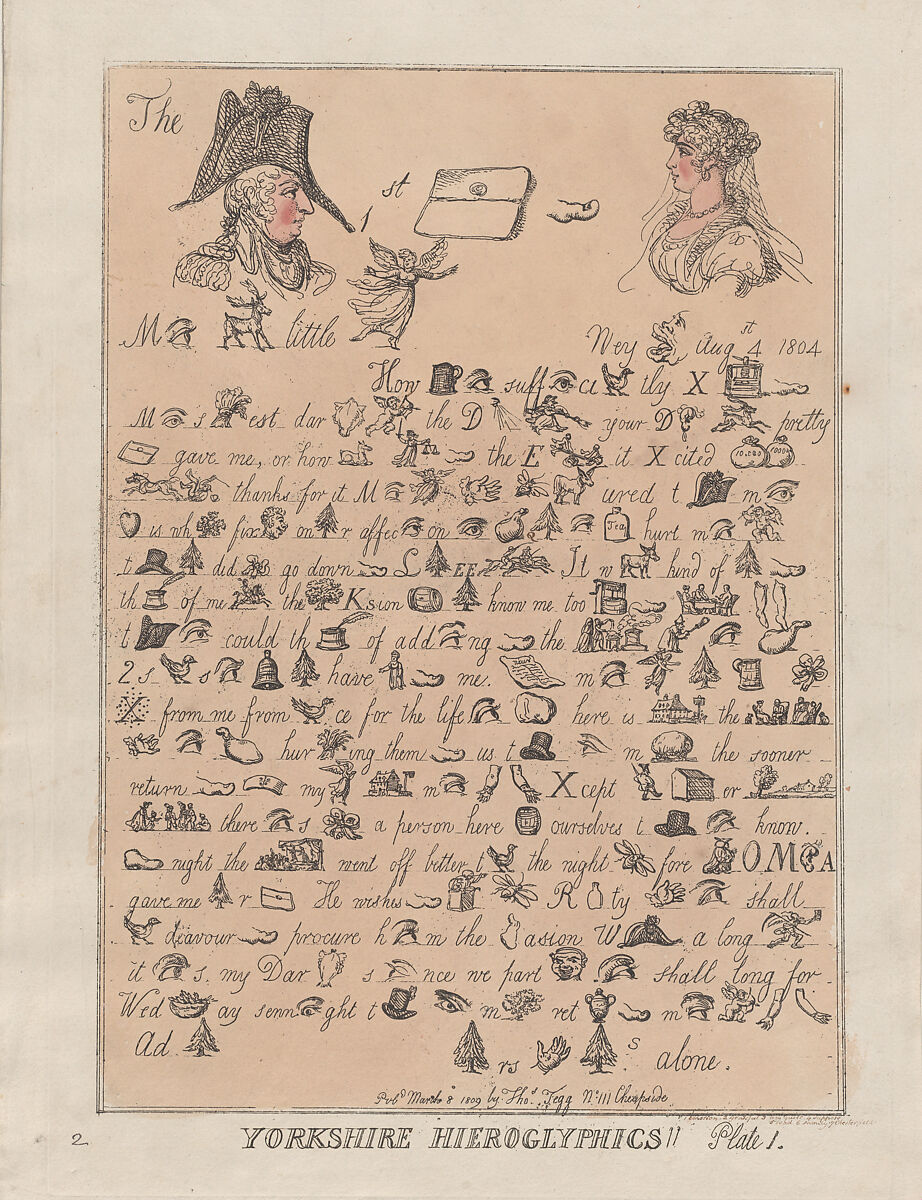 The
1st
M little
Wey Aug st 4 1804
How suff ci tly X
M s est dar the D your D pretty
gave me, or how the E it X cited 10,000
thanks for it M ured t m
is wh fix on r affec on Tea hurt m
t did go down L EE It w kind of
th of me the Ksion know me too
t could th of add ng the
2 s s have me. m
X from me from ce for the life here is the
hur ing them us t m the sooner
return my m X cept er
there s a person here ourselves t know.
night the went off better t the night fore OM A
gave me r He wishes R ty shall
deavour procure h m the asion W a long
it s. my Dar s nce we part shall long for
Wed ay senn ght t m ret m
Ad rs s alone.
Pubd March 8 1809 by Thos Tegg No 111 Cheapside
2 YORKSHIRE HIEROGLYPHICS!! Plate 1.